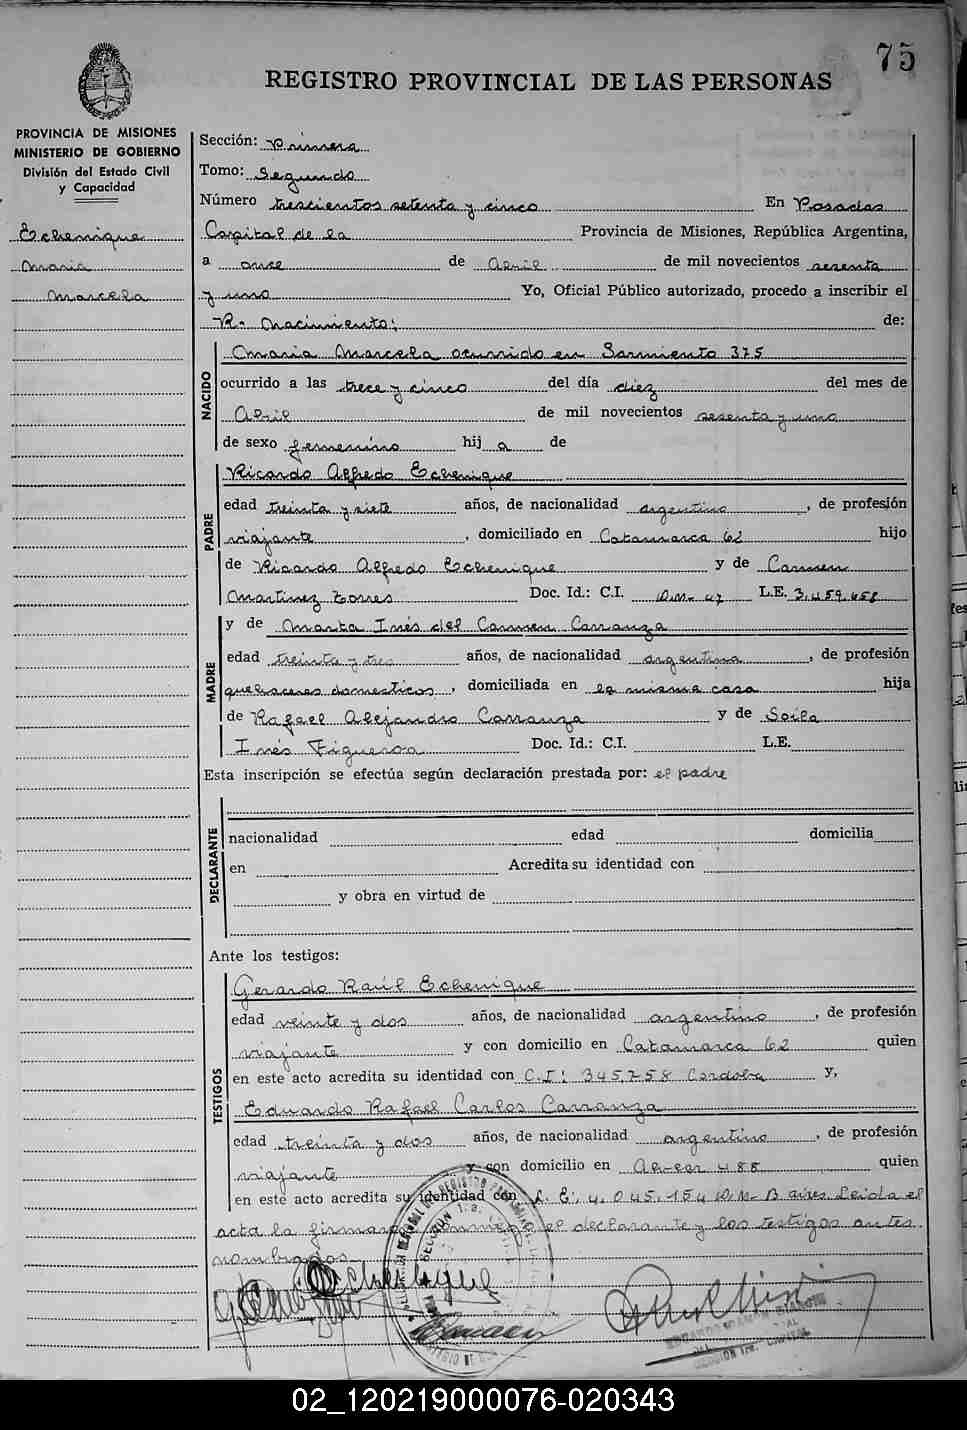 75
REGISTRO PROVINCIAL DE LAS PERSONAS
PROVINCIA DE MISIONES
MINISTERIO DE GOBIERNO
División del Estado Civil
y Capacidad
Echenique
Maria
Marcela
Sección: Primera
Tomo: Segundo
Número trescientos setenta y cinco En Posadas
Capital de la Provincia de Misiones, República Argentina,
a once de Abril de mil novecientos sesenta
y uno Yo, Oficial Público autorizado, procedo a inscribir el
Nacimiento: de:
NACIDO
Maria Marcela ocurrido en Sarmiento 375
ocurrido a las trece y cinco del día diez del mes de
Abril de mil novecientos sesenta y uno
de sexo femenino hij a de
PADRE
Ricardo Alfredo Echenique
edad treinta y siete años, de nacionalidad argentino, de profesión
viajante, domiciliado en Catamarca 62 hijo
de Ricardo Alfredo Echenique y de Carmen
Martinez Torres Doc. Id.: C.I. D.M. 47 L.E. 3.459.658
MADRE
y de Marta Inés del Carmen Carranza
edad treinta y tres años, de nacionalidad argentina, de profesión
quehaceres domesticos, domiciliada en la misma casa hija
de Rafael Alejandro Carranza y de Soila
Inés Figueroa Doc. Id.: C.I. L.E.
Esta inscripción se efectúa según declaración prestada por: el padre
DECLARANTE
nacionalidad edad domicilia
en Acredita su identidad con
y obra en virtud de
Ante los testigos:
TESTIGOS
Gerardo Raúl Echenique
edad veinte y dos años, de nacionalidad argentino, de profesión
viajante y con domicilio en Catamarca 62 quien
en este acto acredita su identidad con C.I: 345.758 Cordoba y,
Eduardo Rafael Carlos Carranza
edad treinta y dos años, de nacionalidad argentino, de profesión
viajante y con domicilio en 488 quien
en este acto acredita su identidad con L.E: 4.045.154 D.M. B. aires. Leida el
acta la firmaro conmigo el declarante y los testigos antes
nombrados
02_120219000076-020343